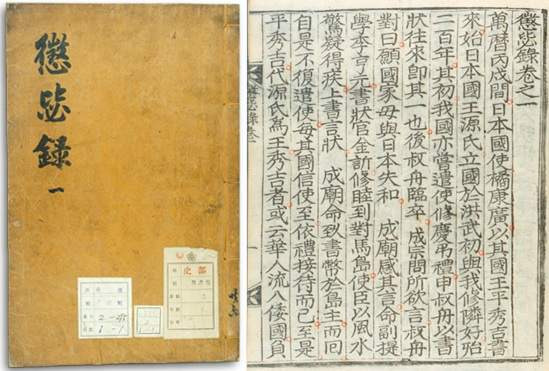 懲毖錄 一
部史
懲毖錄卷之一
萬曆丙戌間日本國使橘康廣以其國王平秀吉書
來始日本國王源氏立國於洪武初與我修隣好殆
二百年其初我國亦嘗遣使修慶弔禮申叔舟以書
狀往來即其一也後叔舟臨卒 成宗問所欲言叔舟
對曰願國家毋與日本失和 成廟感其言命副提
學李亨元書狀官金訢修睦到對馬島使臣以風水
驚疑得疾上書言狀 成廟命致書幣於島主而回
自是不復遣使每其國信使至依禮接待而已至是
平秀吉代源氏爲王秀吉者或云華人流入倭國負